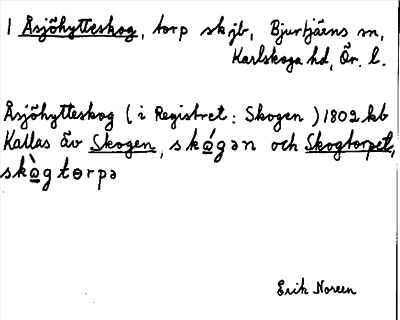 1 Åsjöhytteskog, torp skjb, Bjurtjärns sn,
Karlskoga hd, Ör. l.
Åsjöhytteskog (i Registret: Skogen) 1802 kb
Kallas äv Skogen, skógən och Skogtorpet,
skògtɵrpə
Erik Noreen